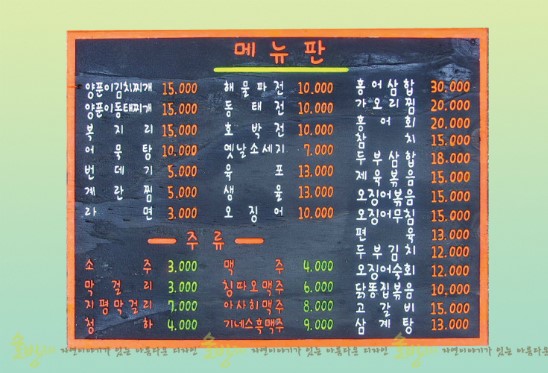 메뉴판
양푼이김치찌개 15.000
양푼이동태찌개 15.000
복지리 15.000
어묵탕 10.000
번데기 5.000
계란찜 5.000
라면 3.000
해물파전 10.000
동태전 10.000
호박전 10.000
옛날소세지 7.000
육포 13.000
생율 13.000
오징어 10.000
주류
소주 3.000
막걸리 3.000
지평막걸리 7.000
청하 4.000
맥주 4.000
칭따오맥주 6.000
아사히맥주 8.000
기네스흑맥주 9.000
홍어삼합 30.000
가오리찜 20.000
홍어회 20.000
참치 15.000
두부삼합 18.000
제육볶음 15.000
오징어볶음 15.000
오징어무침 15.000
편육 13.000
두부김치 12.000
오징어숙회 12.000
닭똥집볶음 10.000
고갈비 15.000
삼계탕 13.000
자연이야기가 있는 아름다운 디자인
자연이야기가 있는 아름다운 디자인